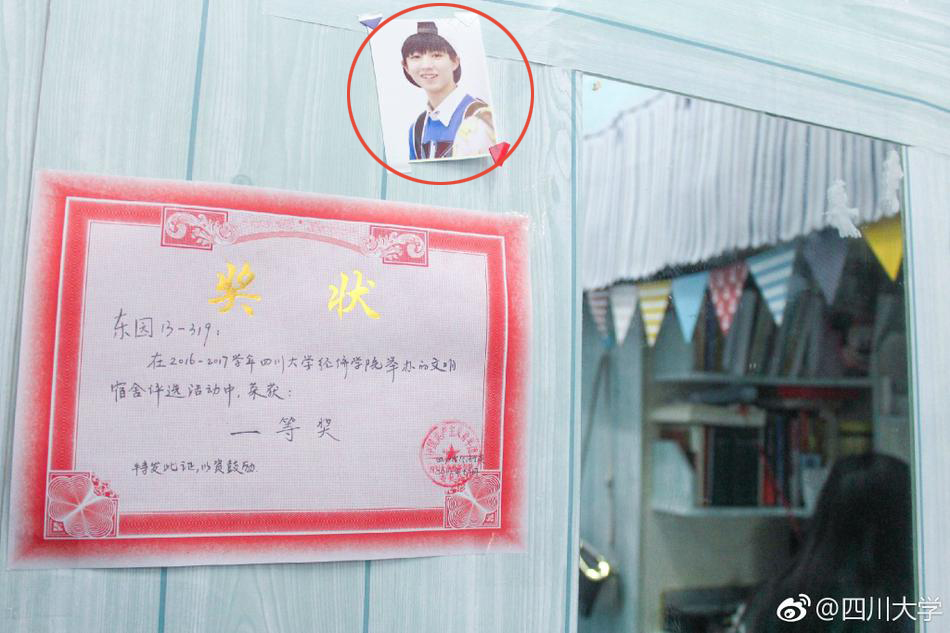 奖 状
东园13-319:
在2016-2017学年四川大学经济学院举办的文明
宿舍评选活动中,荣获:
一等奖
特发此证,以资鼓励.
@四川大学